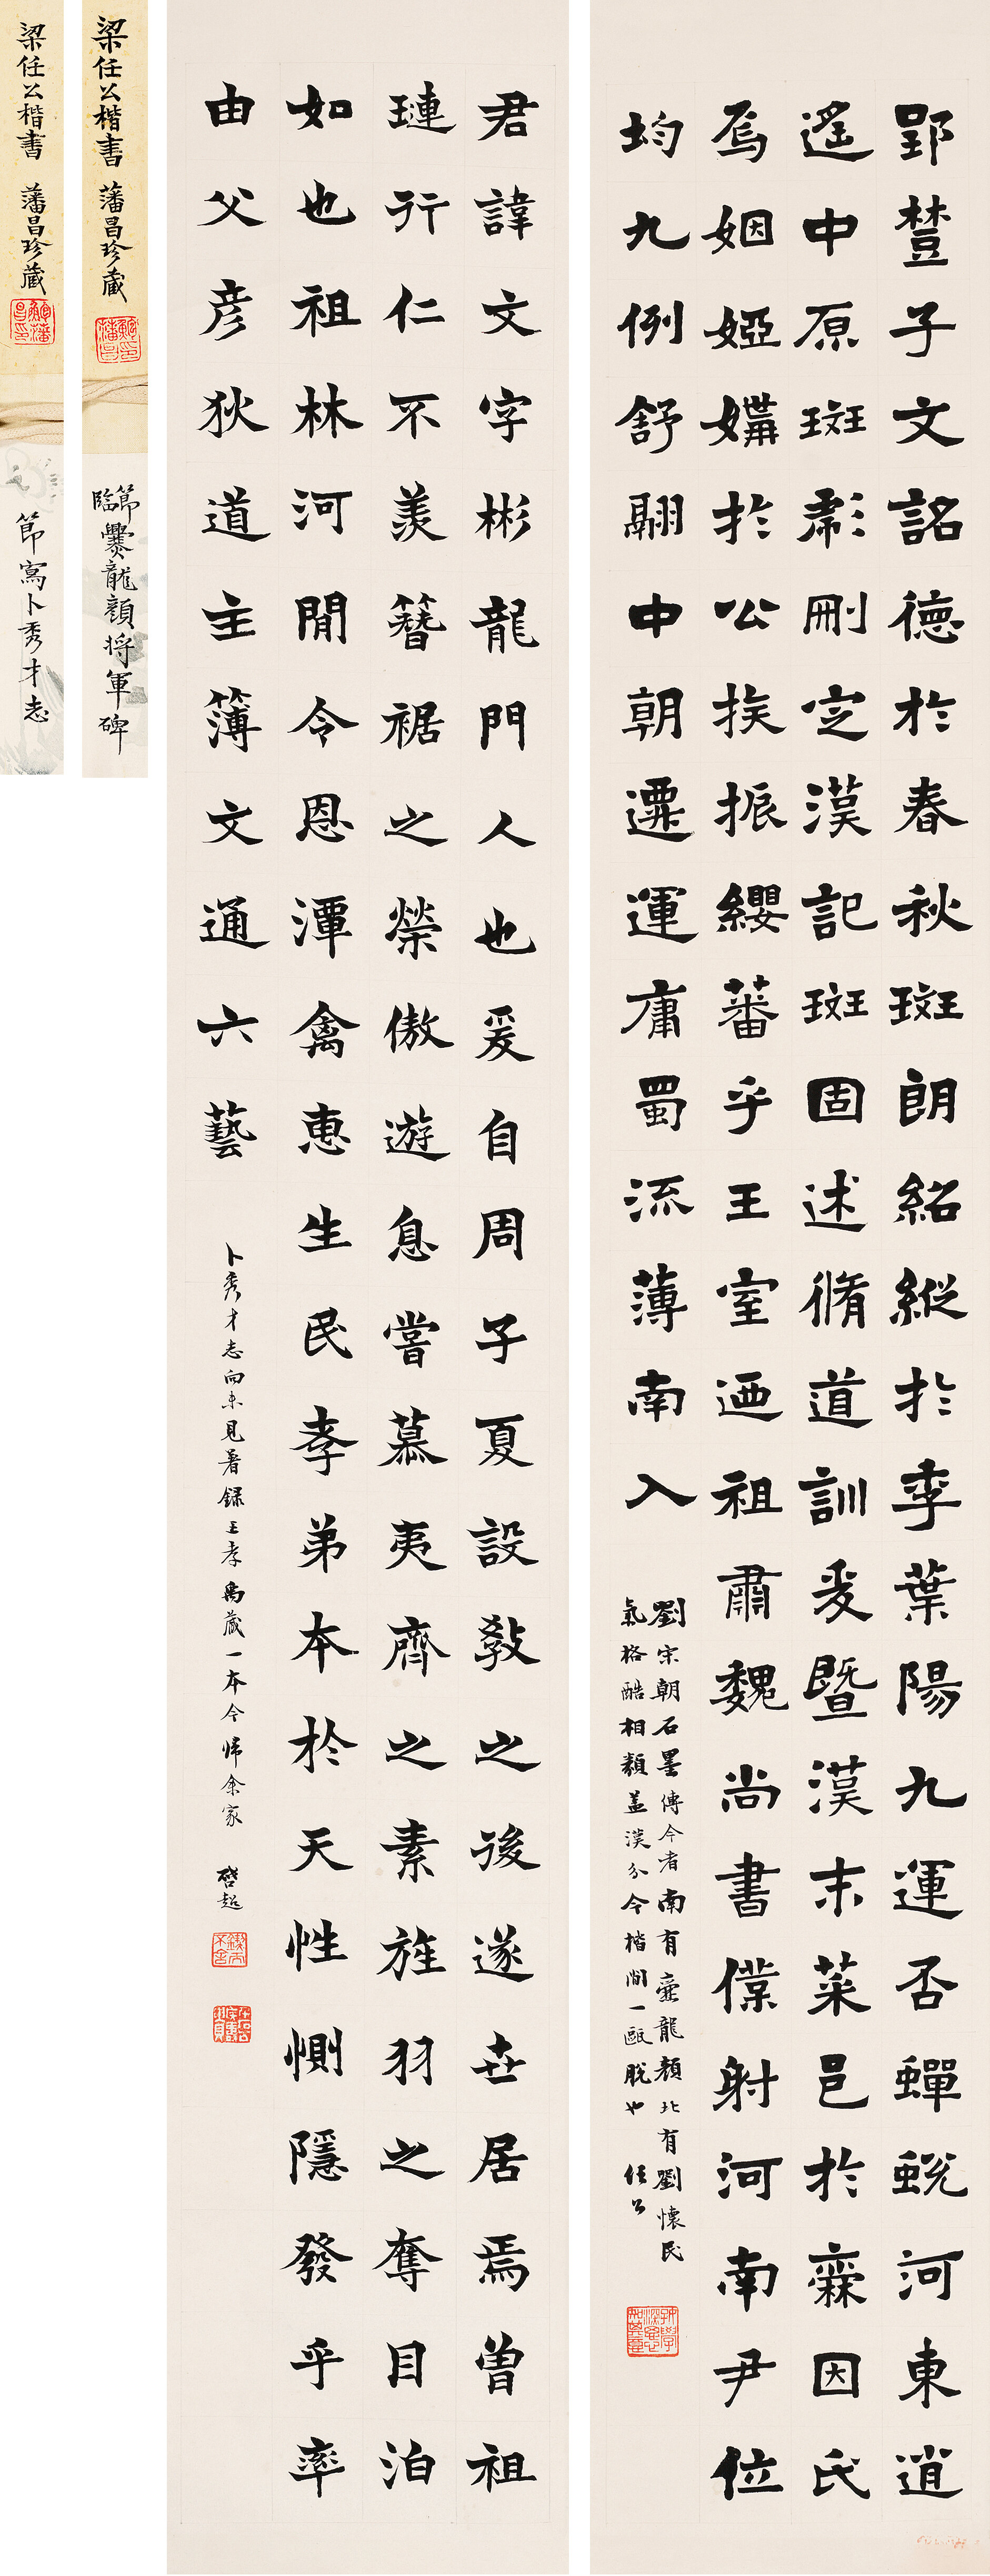 郢楚子文詺德於春秋斑朗紹縱於季葉陽九運否蟬蛻河東逍
遙中原斑彪刪定漢記斑固述脩道訓爰暨漢末菜邑於霖因氏
焉姻婭媾於公族振纓蕃乎王室迺祖肅魏尚書僕射河南尹位
均九例舒翮中朝遷運庸蜀流薄南入
劉宋朝石墨傳今者南有爨龍顏北有劉懷民
氣格酷相類蓋漢分今楷間一甌脫也 任公
好學深思心知其意
君諱文字彬龍門人也爰自周子夏設教之後遂世居焉曾祖
璉行仁不羨簪裾之榮傲遊息嘗慕夷齊之素旌羽之奪目泊
如也祖林河間令恩潭禽惠生民孝弟本於天性惻隱發乎率
由父彥狄道主簿文通六藝
卜秀才志向未見著錄王孝禹藏一本今歸余家 啓超
鍥而不舍
梁任公楷書 藩昌珍藏
節臨爨龍顏將軍碑
梁任公楷書 藩昌珍藏
節寫卜秀才志